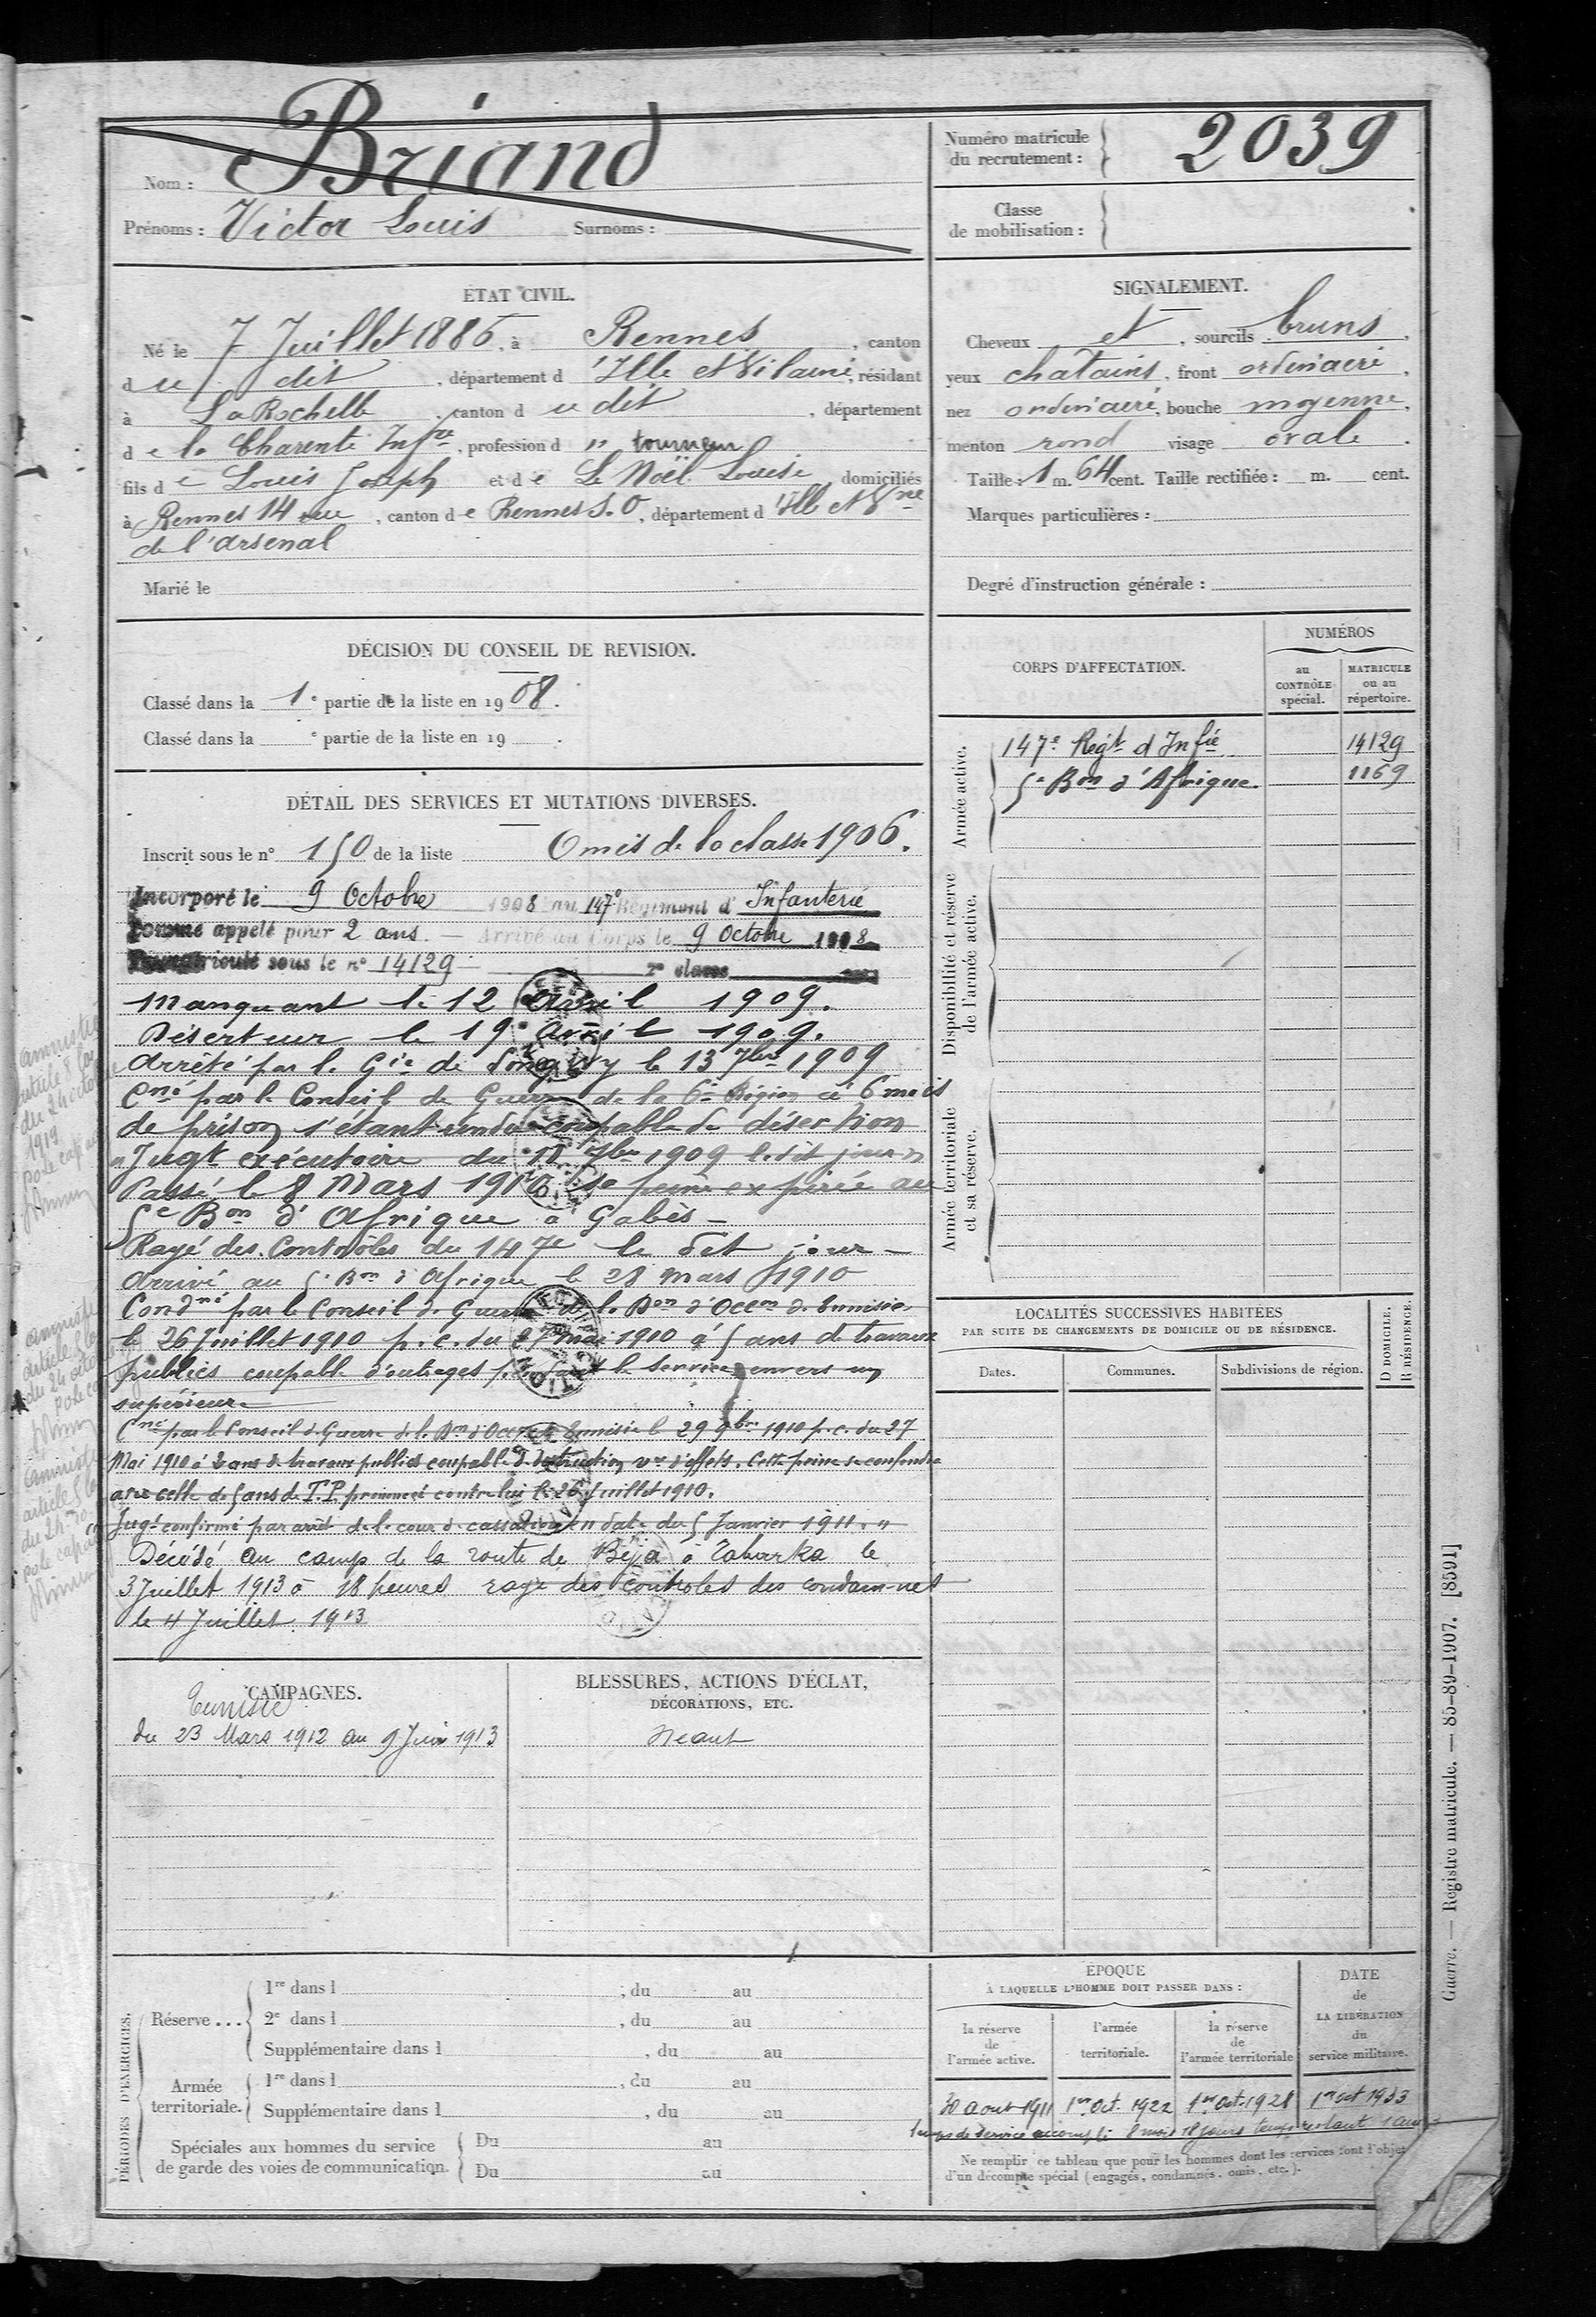 Nom : Briand
Prénoms : Victor Louis Surnoms :
Numéro matricule
du recrutement : 2039
Classe
de mobilisation :
ÉTAT CIVIL.
Né le 7 Juillet 1886, à Rennes, canton
du dit, département d'Ille et Vilaine, résidant
à La Rochelle, canton du dit, département
de la Charente Infre, profession d" tourneur
fils de Louis Joseph et de Le Noël Louise domiciliés
à Rennes 14 rue, canton de Rennes S.O, département d'Ill et Vne
de l'arsenal
Marié le
SIGNALEMENT.
Cheveux et, sourcils bruns,
yeux chatains, front ordinaire,
nez ordinaire, bouche moyenne,
menton rond visage ovale.
Taille : 1 m. 64 cent. Taille rectifiée : m. cent.
Marques particulières :
Degré d'instruction générale :
DÉCISION DU CONSEIL DE REVISION.
Classé dans la 1e partie de la liste en 1908.
Classé dans la e partie de la liste en 19 .
DÉTAIL DES SERVICES ET MUTATIONS DIVERSES.
Inscrit sous le n° 150 de la liste Omis de la classe 1906.
Incorporé le 9 Octobre 1908 au 147e Régiment d'Infanterie
comme appelé pour 2 ans. — Arrivé au Corps le 9 Octobre 1908
sous le n° 14129 2e classe
Manquant le 12 Avril 1909.
Déserteur le 19 avril 1909.
Arrêté par la Gie de Longwy le 13 7bre 1909
Cné par le Conseil de Guerre de la 6e Région à 6 mois
de prison s'étant rendu coupable de désertion
"Jugt exécutoire du 7bre 1909 ledit jour"
Passé le 8 Mars 1910 sa peine expirée au
5e Bon d'Afrique à Gabès —
Rayé des Contrôles du 147e le dit jour —
Arrivé au 5e Bon d'Afrique le 28 mars 1910
Condné par le Conseil de Guerre de la Don d'Occon de Tunisie
le 26 Juillet 1910 p.c. du 27 mai 1910 à 5 ans de travaux
publics coupable d'outrages pendant le service envers un
supérieur
Cné par le Conseil de Guerre de la Don d'Occon de Tunisie le 29 9bre 1910 p.c. du 27
Mai 1910 à 2 ans de travaux publics coupable de destruction vre d'effets. Cette peine se confondra
avec celle de 5 ans de T.P. prononcée contre lui le 26 Juillet 1910.
Jugt confirmé par arrêt de la cour de cassation en date du 5 Janvier 1911."
Décédé au camp de la route de Béja à Tabarka le
3 Juillet 1913 à 18 heures rayé des controles des condam-nés
le 4 Juillet 1913
amnistié
article 8 loi
du 24 octobre
1919
amnistié
article 5 loi
du 24 octo
amnistié
article 5 loi
du 24
CORPS D'AFFECTATION.
NUMÉROS
au
CONTRÔLE
spécial.
MATRICULE
ou au
répertoire.
Armée active.
147e Regt d'Infie 14129
5e Bon d'Afrique. 1169
Disponibilité et réserve
de l'armée active.
Armée territoriale
et sa réserve.
LOCALITÉS SUCCESSIVES HABITÉES
PAR SUITE DE CHANGEMENTS DE DOMICILE OU DE RÉSIDENCE.
Dates. Communes. Subdivisions de région.
D DOMICILE.
R RÉSIDENCE.
CAMPAGNES.
Tunisie
du 23 Mars 1912 au 9 Juin 1913
BLESSURES, ACTIONS D'ÉCLAT,
DÉCORATIONS, ETC.
Neant
PÉRIODES D'EXERCICES.
Réserve ...
1re dans l ; du au
2e dans l , du au
Supplémentaire dans l , du au
Armée
territoriale.
1re dans l , du au
Supplémentaire dans l , du au
Spéciales aux hommes du service
de garde des voies de communication.
Du au
Du au
ÉPOQUE
À LAQUELLE L'HOMME DOIT PASSER DANS :
la réserve
de
l'armée active.
l'armée
territoriale.
la réserve
de
l'armée territoriale
DATE
de
LA LIBÉRATION
du
service militaire.
30 aout 1911 1er Oct. 1922 1er Oct. 1928 1er oct 1933
temps de service accompli 8 mois 18 jours temps restant 1 an
Ne remplir ce tableau que pour les hommes dont les services font l'objet
d'un décompte spécial (engagés, condamnés, omis, etc.).
Guerre. — Registre matricule. — 85-89-1907. [8591]